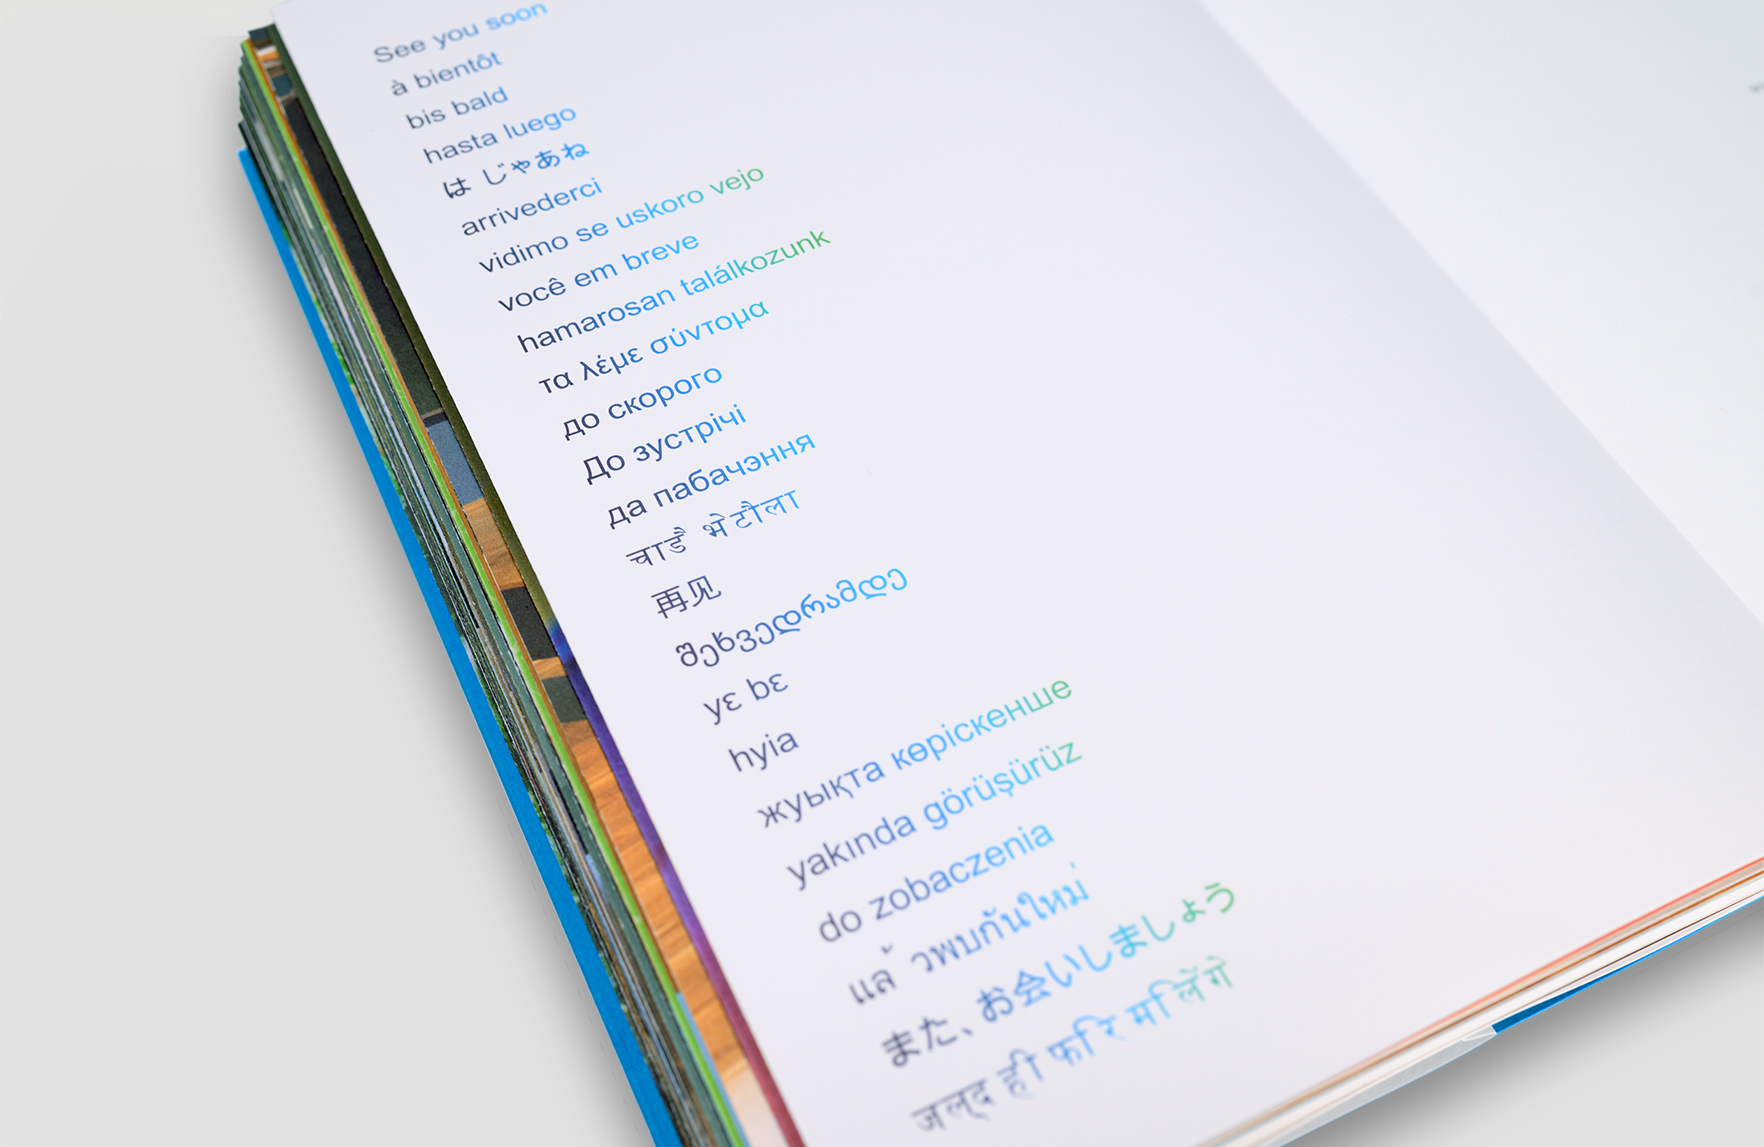 See you soon
à bientôt
bis bald
hasta luego
は じゃあね
arrivederci
vidimo se uskoro vejo
você em breve
hamarosan találkozunk
τα λέμε σύντομα
до скорого
До зустрічі
да пабачэння
चाडै भेटौला
再见
შეხვედრამდე
yɛ bɛ
hyia
жуықта көріскенше
yakında görüşürüz
do zobaczenia
แล้ วพบกันใหม่
また、お会いしましょう
जल्द ही फरि मलिेंगे